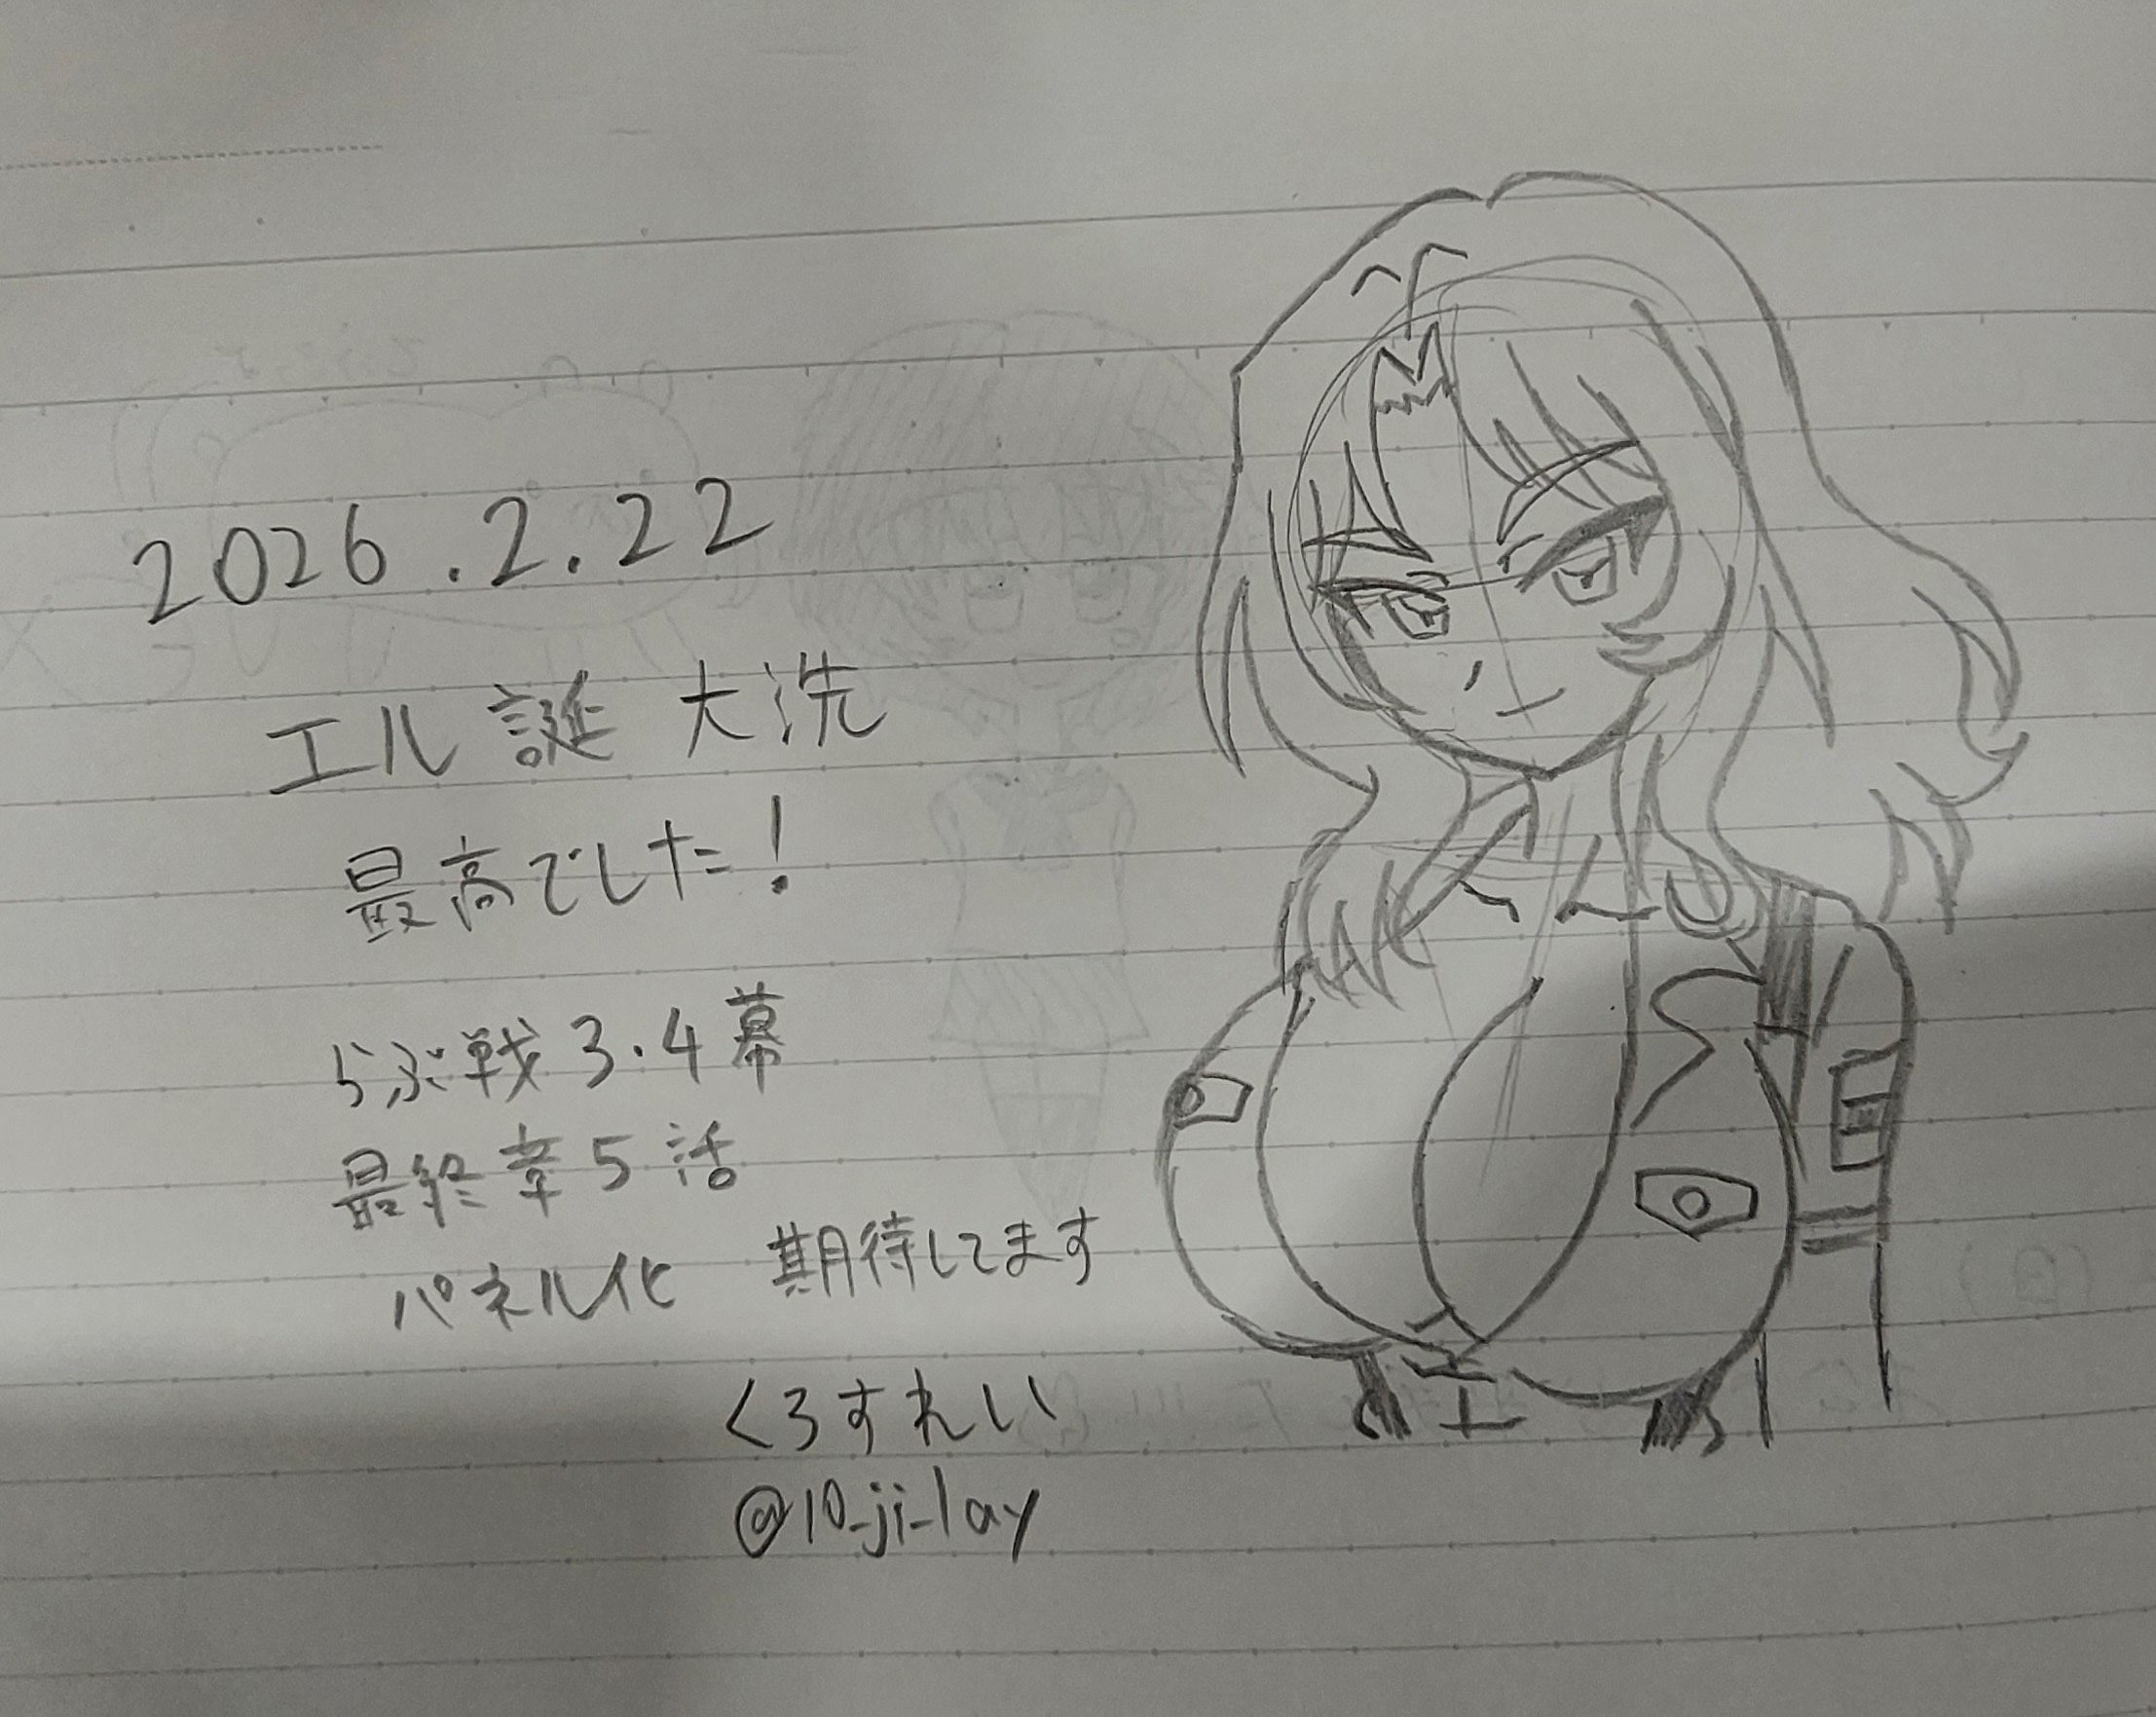 2026.2.22
エル誕 大洗
最高でした!
らぶ戦3.4幕
最終章5話
パネル化 期待してます
くろすれい
@10_ji_lay